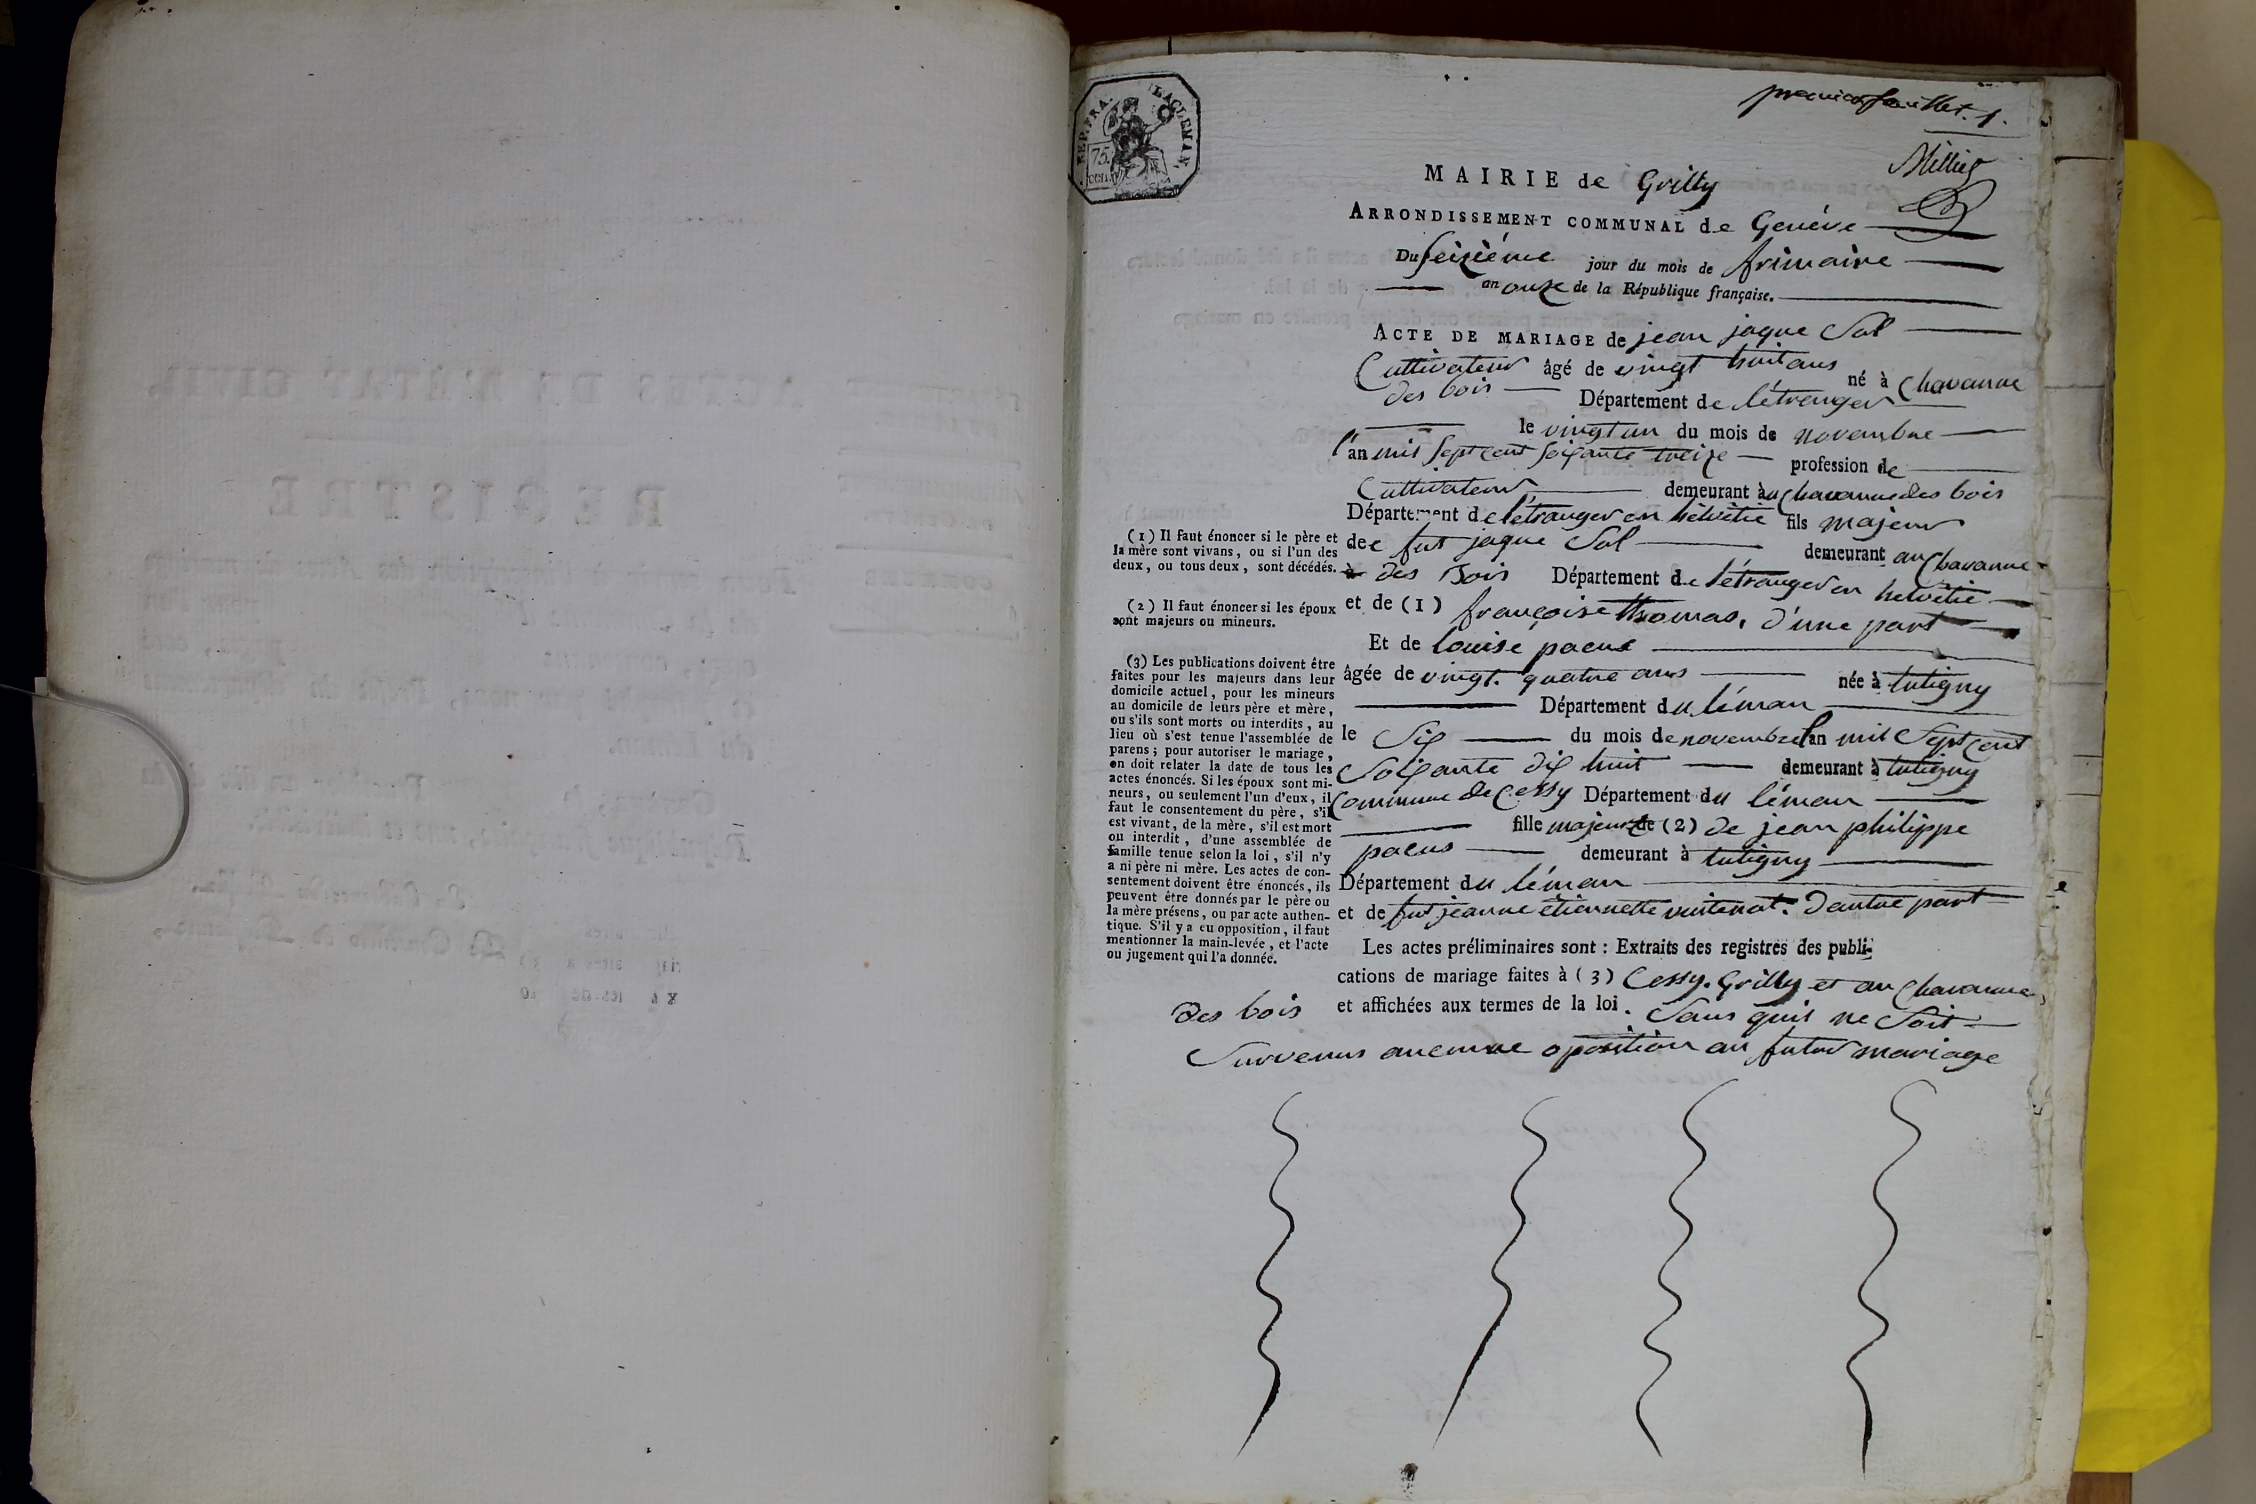 premier feuillet. 1.
REP. FRA.
DACLEMAN.
75.
CENT.
Millies
MAIRIE de Grilly
ARRONDISSEMENT COMMUNAL de Genéve
Du seizième jour du mois de frimaire
an onze de la République française.
ACTE DE MARIAGE de jean jaque Sol
Cultivateur âgé de vingt huit ans né à Chavanne
des bois Département de létranger
le vingt un du mois de novembre
l'an mil sept cent soixante treize profession de
Cultivateur demeurant au Chavanne des bois
Département de létranger en helvétie fils majeur
de fut jaque Sol demeurant au Chavanne
à des Bois Département de létranger en helvétie
et de (1) françoise thomas, d'une part
Et de louise pacus
âgée de vingt quatre ans née à tutigny
Département du léman
le Six du mois de novembre l'an mil Sept Cent
Soixante dix huit demeurant à tutigny
Commune de Cessy Département du léman
fille majeure (2) de jean philippe
pacus demeurant à tutigny
Département du léman
et de fut jeanne étiennette d'autre part
Les actes préliminaires sont : Extraits des registres des publi-
cations de mariage faites à (3) Cessy. Grilly et au Chavanne
des bois et affichées aux termes de la loi. Sans quil ne Soit
Survenus aucune oposition au futur mariage
(1) Il faut énoncer si le père et
la mère sont vivans, ou si l'un des
deux, ou tous deux, sont décédés.
(2) Il faut énoncer si les époux
sont majeurs ou mineurs.
(3) Les publications doivent être
faites pour les majeurs dans leur
domicile actuel, pour les mineurs
au domicile de leurs père et mère,
ou s'ils sont morts ou interdits, au
lieu où s'est tenue l'assemblée de
parens ; pour autoriser le mariage,
on doit relater la date de tous les
actes énoncés. Si les époux sont mi-
neurs, ou seulement l'un d'eux, il
faut le consentement du père, s'il
est vivant, de la mère, s'il est mort
ou interdit, d'une assemblée de
famille tenue selon la loi, s'il n'y
a ni père ni mère. Les actes de con-
sentement doivent être énoncés, ils
peuvent être donnés par le père ou
la mère présens, ou par acte authen-
tique. S'il y a eu opposition, il faut
mentionner la main-levée, et l'acte
ou jugement qui l'a donnée.